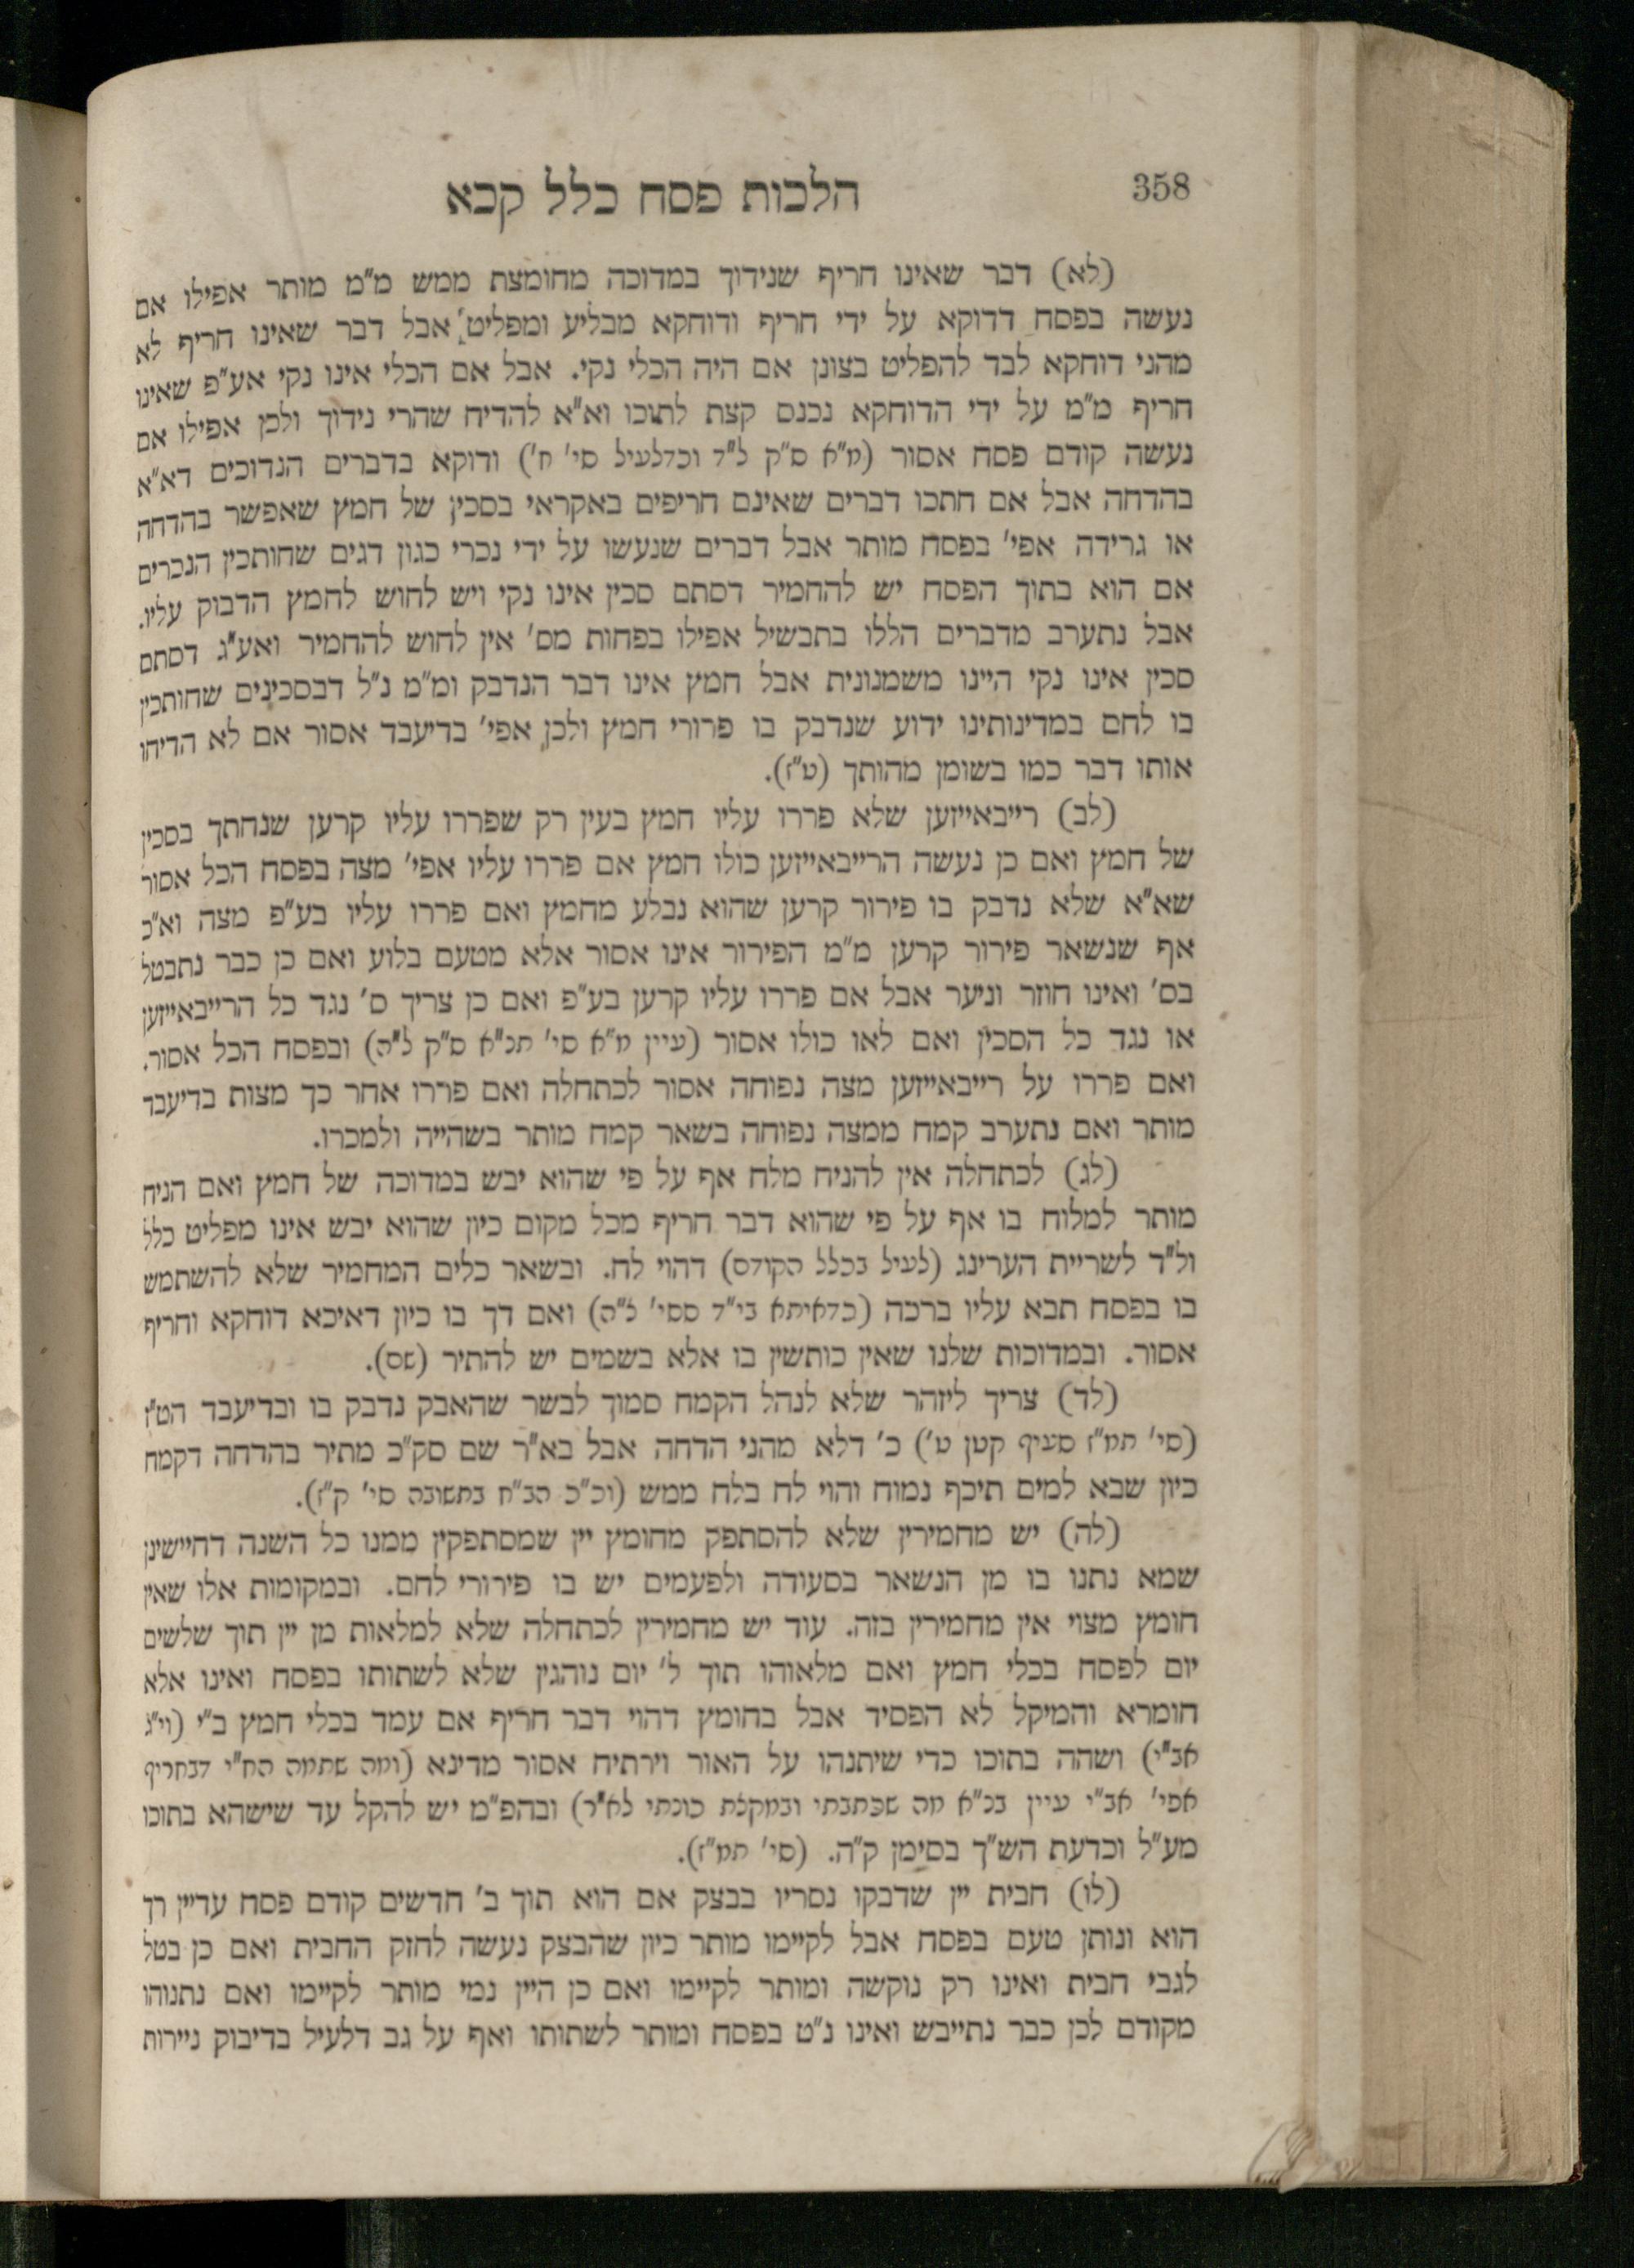 358
הלכות פסח כלל קכא
(לא) דבר שאינו חריף שנידוך במדוכה מחומצת ממש מ"מ מותר אפילו אם
נעשה בפסח דדוקא על ידי חריף ודוחקא מבליע ומפליט אבל דבר שאינו חריף לא
מהני דוחקא לבד להפליט בצונן אם היה הכלי נקי. אבל אם הכלי אינו נקי אע"פ שאינו
חריף מ"מ על ידי הדוחקא נכנס קצת לתוכו וא"א להדיח שהרי נידוך ולכן אפילו אם
נעשה קודם פסח אסור (מ"א ס"ק ל"ד וכדלעיל סי' ח') ודוקא בדברים הנדוכים דא"א
בהדחה אבל אם חתכו דברים שאינם חריפים באקראי בסכין של חמץ שאפשר בהדחה
או גרידה אפי' בפסח מותר אבל דברים שנעשו על ידי נכרי כגון דגים שחותכין הנכרים
אם הוא בתוך הפסח יש להחמיר דסתם סכין אינו נקי ויש לחוש לחמץ הדבוק עליו.
אבל נתערב מדברים הללו בתבשיל אפילו בפחות מס' אין לחוש להחמיר ואע"ג דסתם
סכין אינו נקי היינו משמנונית אבל חמץ אינו דבר הנדבק ומ"מ נ"ל דבסכינים שחותכין
בו לחם במדינותינו ידוע שנדבק בו פרורי חמץ ולכן אפי' בדיעבד אסור אם לא הדיחו
אותו דבר כמו בשומן מהותך (ט"ז).
(לב) רייבאייזען שלא פררו עליו חמץ בעין רק שפררו עליו קרען שנחתך בסכין
של חמץ ואם כן נעשה הרייבאייזען כולו חמץ אם פררו עליו אפי' מצה בפסח הכל אסור
שא"א שלא נדבק בו פירור קרען שהוא נבלע מחמץ ואם פררו עליו בע"פ מצה וא"כ
אף שנשאר פירור קרען מ"מ הפירור אינו אסור אלא מטעם בלוע ואם כן כבר נתבטל
בס' ואינו חוזר וניער אבל אם פררו עליו קרען בע"פ ואם כן צריך ס' נגד כל הרייבאייזען
או נגד כל הסכין ואם לאו כולו אסור (עיין מ"א סי' תנ"א ס"ק ל"ה) ובפסח הכל אסור.
ואם פררו על רייבאייזען מצה נפוחה אסור לכתחלה ואם פררו אחר כך מצות בדיעבד
מותר ואם נתערב קמח ממצה נפוחה בשאר קמח מותר בשהייה ולמכרו.
(לג) לכתחלה אין להניח מלח אף על פי שהוא יבש במדוכה של חמץ ואם הניח
מותר למלוח בו אף על פי שהוא דבר חריף מכל מקום כיון שהוא יבש אינו מפליט כלל
ול"ד לשריית הערינג (לעיל בכלל הקודם) דהוי לח. ובשאר כלים המחמיר שלא להשתמש
בו בפסח תבא עליו ברכה (כדאיתא בי"ד ססי' ל"ה) ואם דך בו כיון דאיכא דוחקא וחריף
אסור. ובמדוכות שלנו שאין כותשין בו אלא בשמים יש להתיר (שם).
(לד) צריך ליזהר שלא לנהל הקמח סמוך לבשר שהאבק נדבק בו ובדיעבד הט"ז
(סי' תמ"ז סעיף קטן ט') כ' דלא מהני הדחה אבל בא"ר שם סק"כ מתיר בהדחה דקמח
כיון שבא למים תיכף נמוח והוי לח בלח ממש (וכ"כ הב"ח בתשובה סי' ק"ז).
(לה) יש מחמירין שלא להסתפק מחומץ יין שמסתפקין ממנו כל השנה דחיישינן
שמא נתנו בו מן הנשאר בסעודה ולפעמים יש בו פירורי לחם. ובמקומות אלו שאין
חומץ מצוי אין מחמירין בזה. עוד יש מחמירין לכתחלה שלא למלאות מן יין תוך שלשים
יום לפסח בכלי חמץ ואם מלאוהו תוך ל' יום נוהגין שלא לשתותו בפסח ואינו אלא
חומרא והמיקל לא הפסיד אבל בחומץ דהוי דבר חריף אם עמד בכלי חמץ ב"י (וי"ג
אב"י) ושהה בתוכו כדי שיתנהו על האור וירתיח אסור מדינא (ומה שתמה הח"י דבחריף
אפי' אב"י עיין בנ"א מה שכתבתי ובמקלת כונתי לא"ר) ובהפ"מ יש להקל עד שישהא בתוכו
מע"ל וכדעת הש"ך בסימן ק"ה. (סי' תמ"ז).
(לו) חבית יין שדבקו נסריו בבצק אם הוא תוך ב' חדשים קודם פסח עדיין רך
הוא ונותן טעם בפסח אבל לקיימו מותר כיון שהבצק נעשה לחזק החבית ואם כן בטל
לגבי חבית ואינו רק נוקשה ומותר לקיימו ואם כן היין נמי מותר לקיימו ואם נתנוהו
מקודם לכן כבר נתייבש ואינו נ"ט בפסח ומותר לשתותו ואף על גב דלעיל בדיבוק ניירות